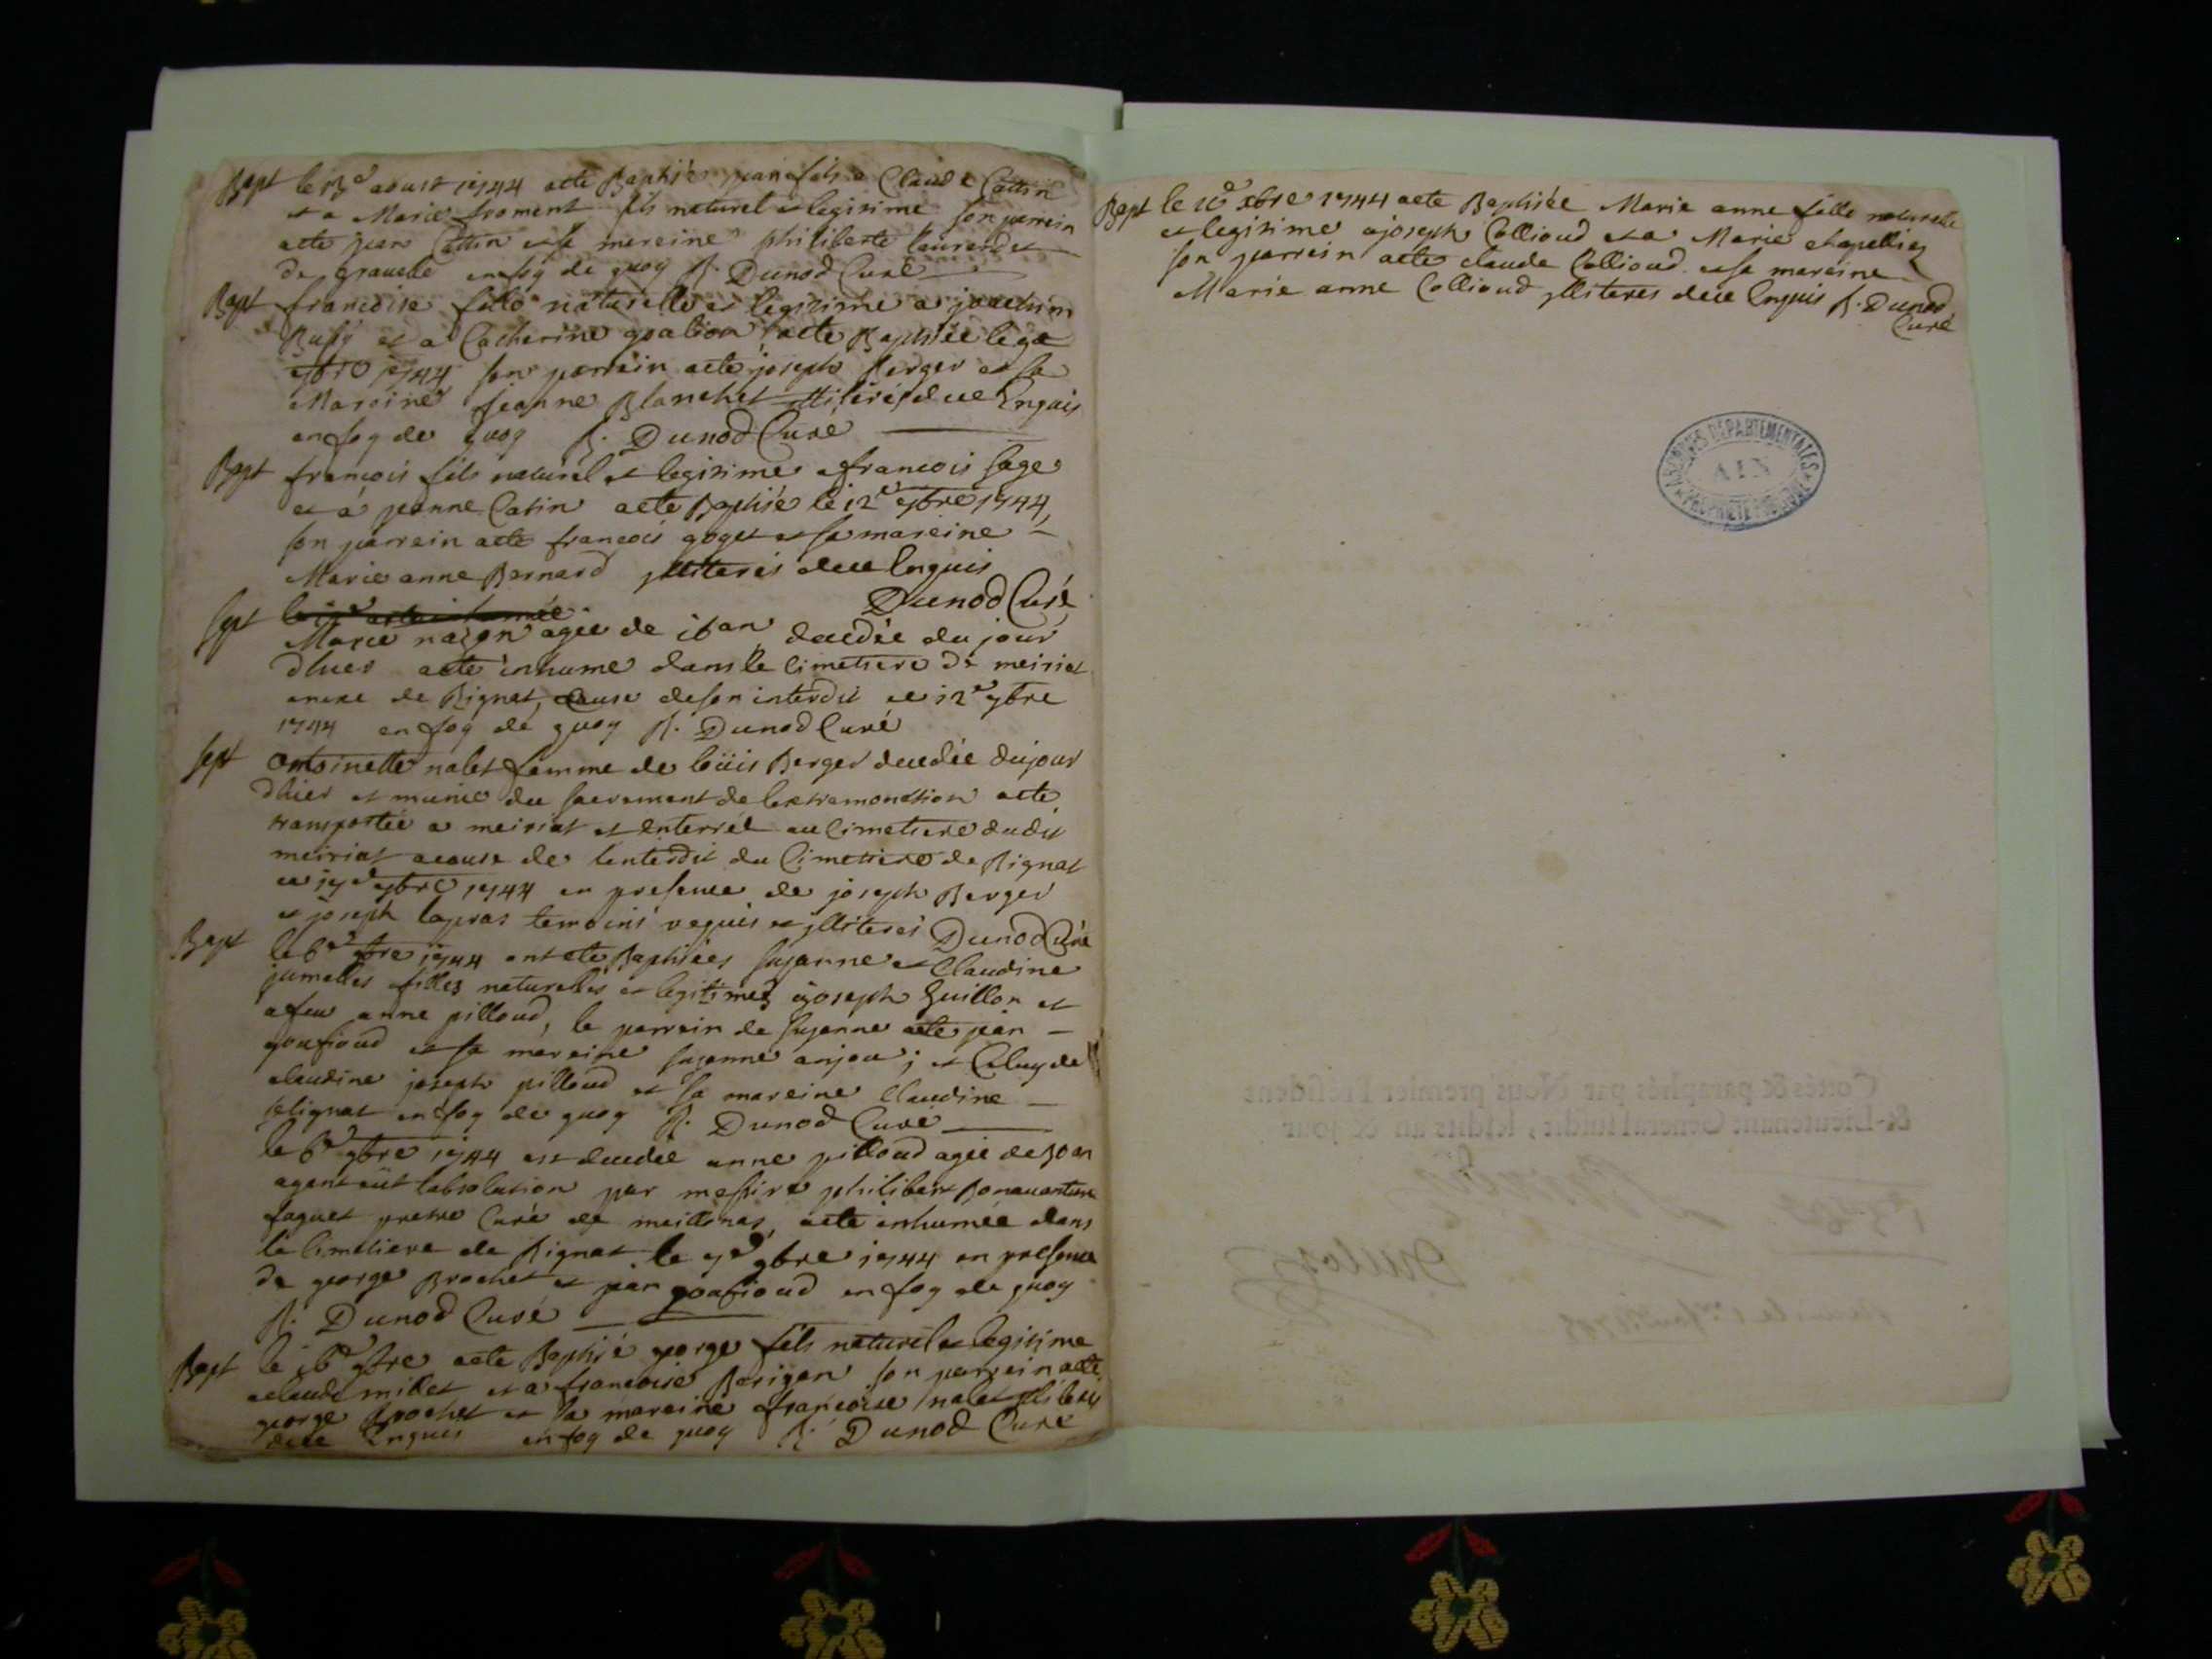 Bapt le 13e aoust 1744 acte Baptisé jean fils a Claude Cottin
et a Marie froment fils naturel et legitime son parrein
acte jean Cottin et sa mareine philiberte laurendet
de gravelle en foy de quoy R. Dunod Curé
Bapt francoise fille naturelle et legitime a joachim
et a Catherine acte Baptisée le
7bre 1744 son parrein acte joseph Berger et sa
Mareine jeanne Blanchet illiteres deue Enquis
en foy de quoy R. Dunod Curé
Bapt francois fils naturel et legitime a francois sage
et a jeanne Catin acte Baptisé le 12e 7bre 1744
son parrein acte francois goget et sa mareine
Marie anne Bernard illiteres deue Enquis
Dunod Curé
Sept
Marie nazon agee de 16 an decedée du jour
dhier acte inhume dans le cimetiere de meiriat
anexe de Rignat, cause de son interdit ce 12e 7bre
1744 en foy de quoy R. Dunod Curé
Sept antoinette nalet femme de loüis Berger decedée du jour
dhier et munie du sacrement de lextremonction acte
transportée a meiriat et enterrée au cimetiere dudit
meiriat acause de linterdit du cimetiere de Rignat
ce 17e 7bre 1744 en presence de joseph Berger
et joseph lapras temoins requis et illiteres Dunod Curé
Bapt le 6e 9bre 1744 ont ete Baptisées susanne et Claudine
jumelles filles naturelles et legitimes a joseph Guillon et
a feu anne pilloud, le parrein de susanne acte jean
goufioud et sa mareine susanne anjou; et Celuy de
claudine joseph pilloud et sa mareine Claudine
selignat en foy de quoy R. Dunod Curé
le 6e 9bre 1744 est decedée anne pilloud agée de 30 an
ayant eüt labsolution par messire philibert Bonaventure
faguet pretre Curé de meillonas, acte inhumée dans
le Cimetiere de Rignat le 7e 9bre 1744 en presence
de george Brochet et jean goufioud en foy de quoy
R. Dunod Curé
Bapt le 16e 9bre acte Baptisé george fils naturel et legitime
a claude millet et a francoise Perigan son parrein acte
george Brochet et sa mareine francoise nalet illiteres
deue Enquis en foy de quoy R. Dunod Curé
Bapt le 10e Xbre 1744 acte Baptisée Marie anne fille naturelle
et legitime a joseph Collioud et a Marie chapellier
son parrein acte claude Collioud et sa mareine
Marie anne Collioud illiteres deue Enquis R. Dunod
Curé
ARCHIVES DEPARTEMENTALES
AIN
PROPRIETE PUBLIQUE
Cottés & paraphés par Nous premier President
& Lieutenant General susdit, lesdits an & jour